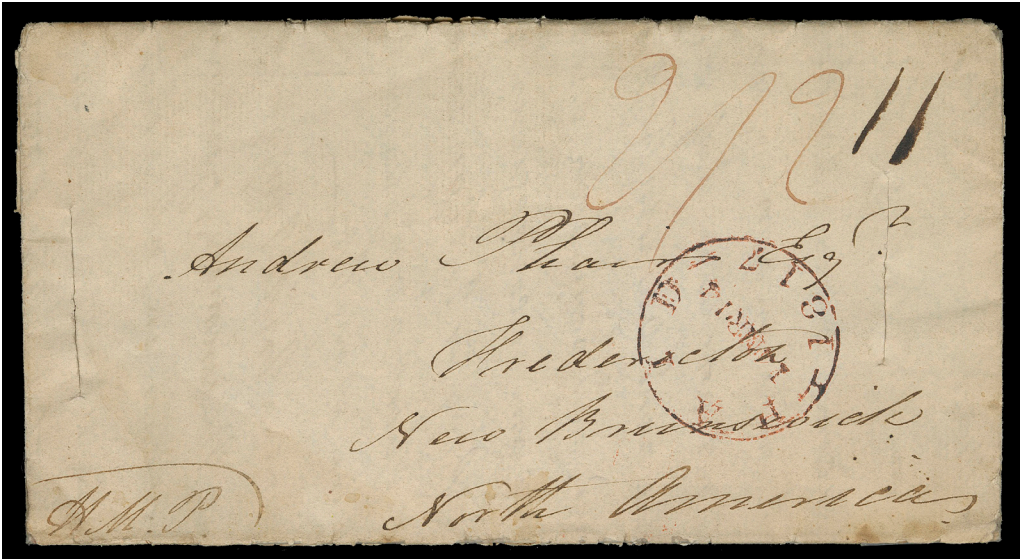 2/2 11
Andrew Phair Esqr.
Fredericton
New Brunswick
North America
H.M.P.